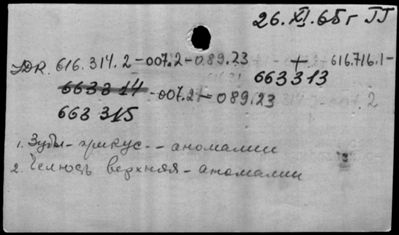 26.XI.65г II
УДК. 616.314.2-007.2-089.23 + 616.716.1-
663313
663314 -007.21-089.23 2
663315
1. Зубы-прикус--аномалии
2. Челюсть верхняя-аномалии